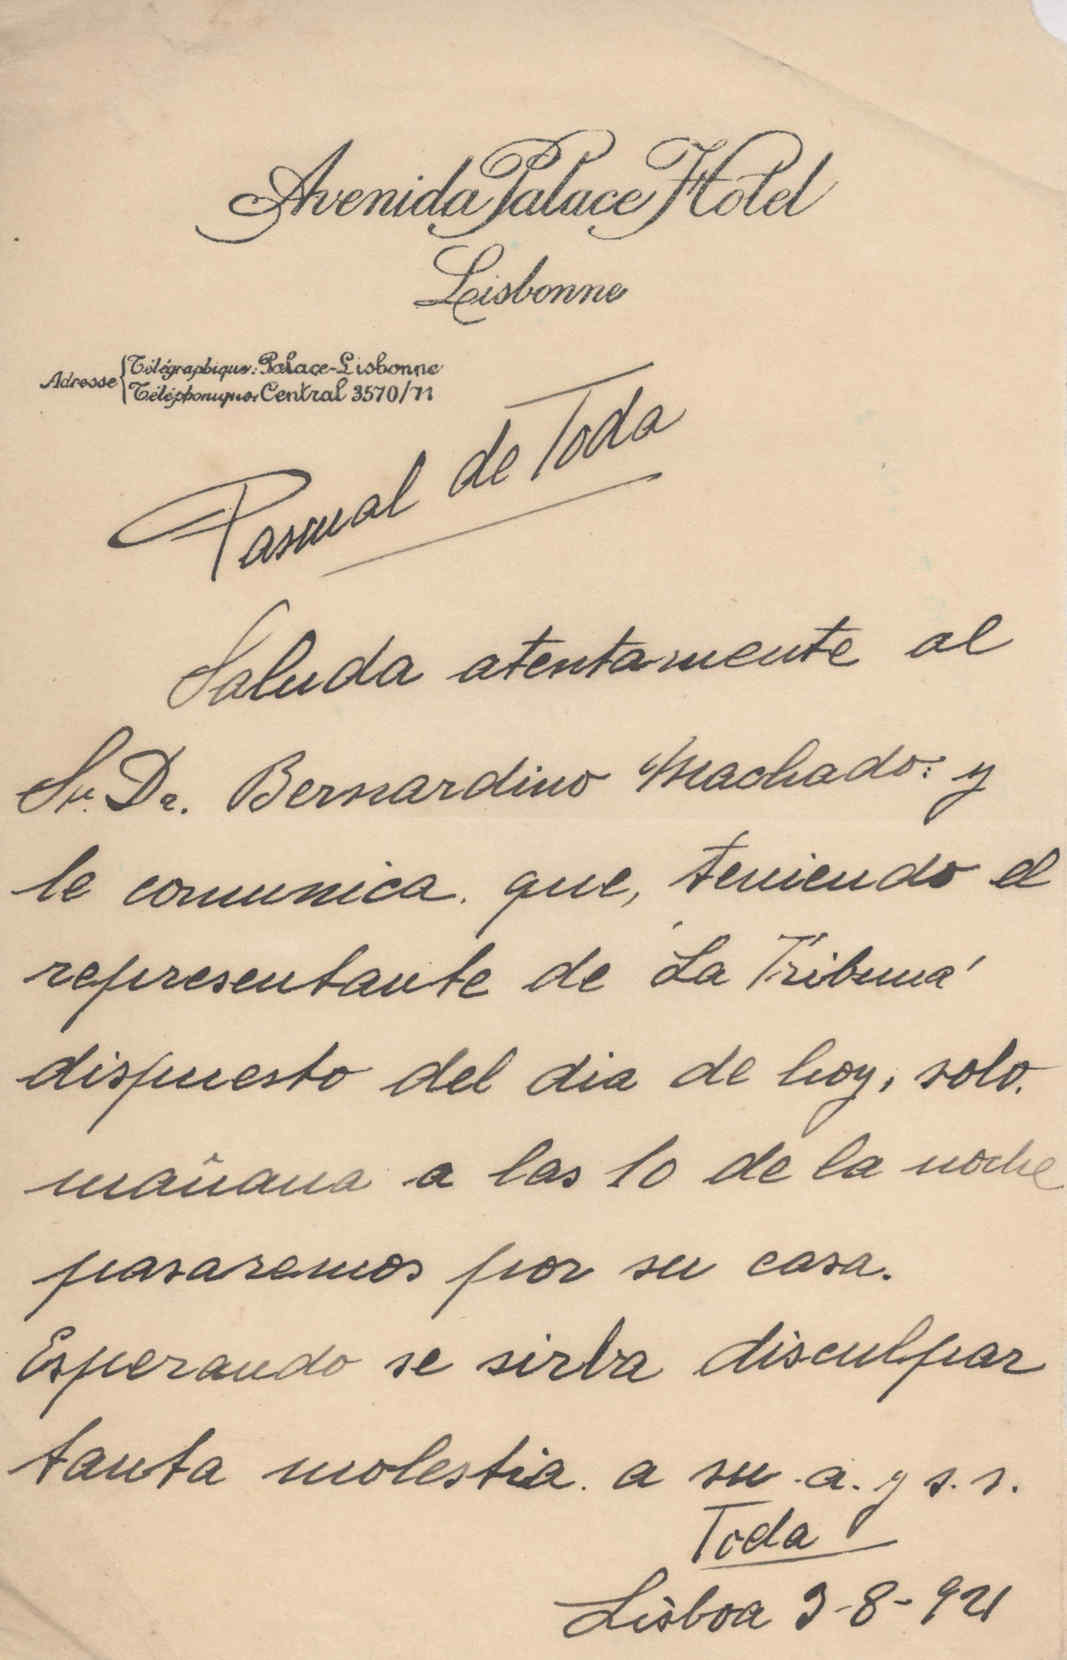 Avenida Palace Hotel
Lisbonne
Adresse { Télégraphique: Palace-Lisbonne
Téléphonique: Central 3570/71
Pascual de Toda
Saluda atentamente al
Sr. Dr. Bernardino Machado: y
le comunica. que, teniendo el
representante de 'La Tribuna'
dispuesto del dia de hoy, solo.
mañana a las 10 de la noche
pasaremos por su casa.
Esperando se sirba disculpar
tanta molestia. a su .a. y s. s.
Toda
Lisboa 3-8-921